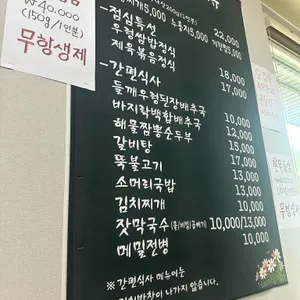 ₩40,000
(150g/1인분)
무항생제
22,000
-점심특선
우렁쌈밥정식 18,000
제육볶음정식 17,000
-간편식사
들깨우렁된장배추국 10,000
바지락백합배추국 12,000
해물짬뽕순두부 15,000
갈비탕 17,000
뚝불고기 13,000
소머리국밥 13,000
김치찌개 10,000
잣막국수(물/비빔/곱빼기) 10,000/13,000
메밀전병 10,000
※간편식사 메뉴에는
나가지 않습니다.